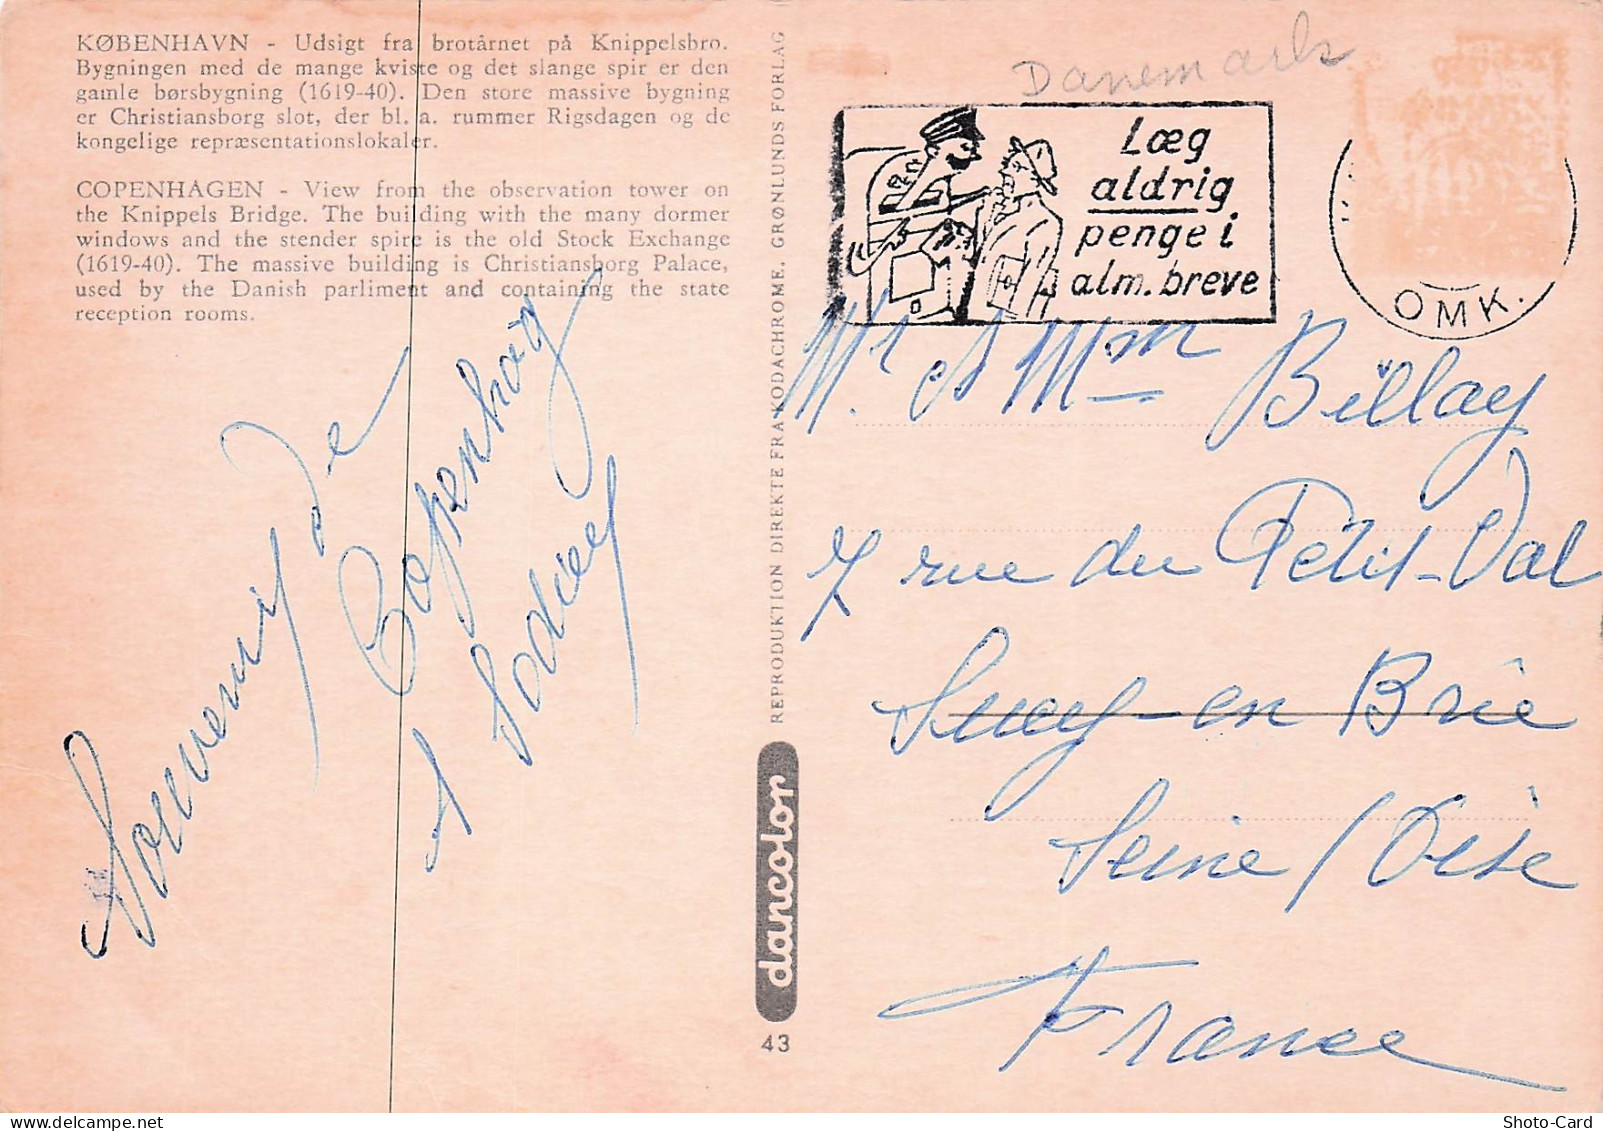 KØBENHAVN - Udsigt fra brotårnet på Knippelsbro.
Bygningen med de mange kviste og det slange spir er den
gamle børsbygning (1619-40). Den store massive bygning
er Christiansborg slot, der bl. a. rummer Rigsdagen og de
kongelige repræsentationslokaler.
COPENHAGEN - View from the observation tower on
the Knippels Bridge. The building with the many dormer
windows and the stender spire is the old Stock Exchange
(1619-40). The massive building is Christiansborg Palace,
used by the Danish parliment and containing the state
reception rooms.
Souvenir de
Copenhag
REPRODUKTION DIREKTE FRA KODACHROME. GRØNLUNDS FORLAG
dancolor
43
Danemark
Læg
aldrig
penge i
alm. breve
OMK.
Mr et Mme Billay
7 rue du Petit-Val
Sucy-en Brie
Seine/Oise
France
Shoto-Card